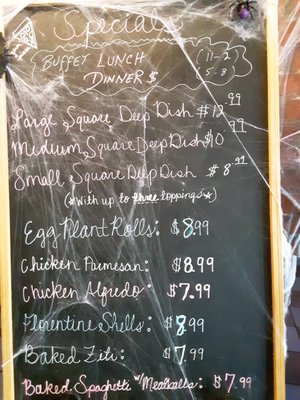 Specials
BUFFET LUNCH (11-2)
DINNER $ (5-8)
Large Square Deep Dish $12.99
Medium Square Deep Dish $10.99
Small Square Deep Dish $8.99
(*With up to three toppings*)
Egg Plant Rolls: $8.99
Chicken Parmesan: $8.99
Chicken Alfredo: $7.99
Florentine Shells: $8.99
Baked Ziti: $7.99
Baked Spaghetti w/ Meatballs: $7.99